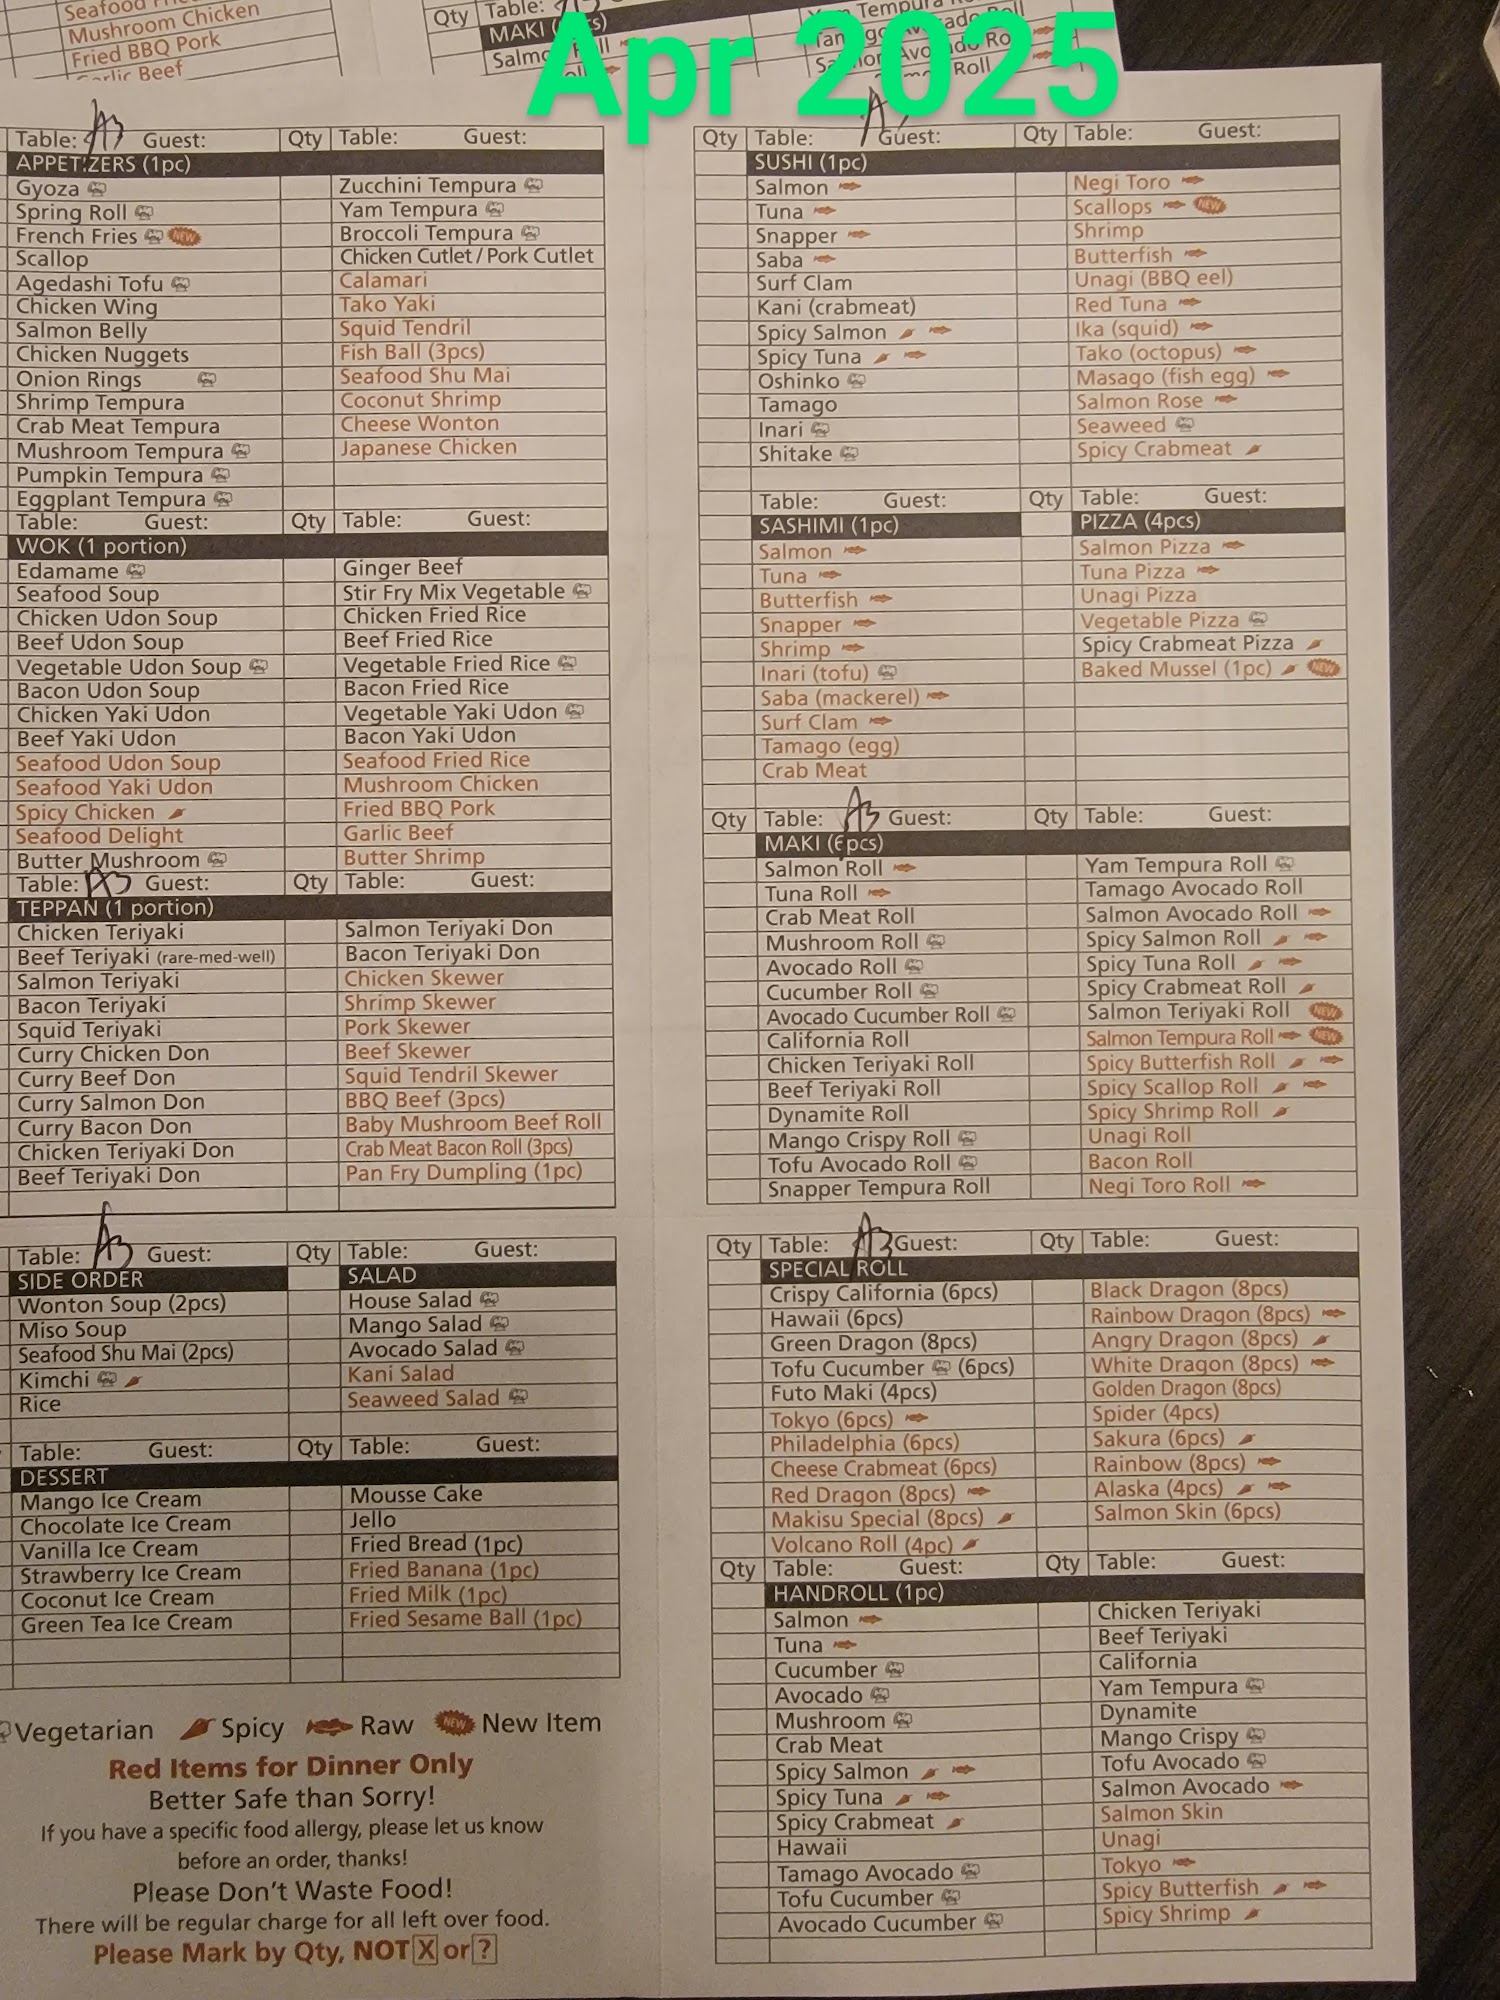 Seafood
Mushroom Chicken
Fried BBQ Pork
Garlic Beef
Qty Table:
MAKI
Yam Tempura Roll
Apr 2025
Table: A3 Guest: Qty Table: Guest:
APPETIZERS (1pc)
Gyoza
Spring Roll
French Fries NEW
Scallop
Agedashi Tofu
Chicken Wing
Salmon Belly
Chicken Nuggets
Onion Rings
Shrimp Tempura
Crab Meat Tempura
Mushroom Tempura
Pumpkin Tempura
Eggplant Tempura
Zucchini Tempura
Yam Tempura
Broccoli Tempura
Chicken Cutlet / Pork Cutlet
Calamari
Tako Yaki
Squid Tendril
Fish Ball (3pcs)
Seafood Shu Mai
Coconut Shrimp
Cheese Wonton
Japanese Chicken
Table: Guest: Qty Table: Guest:
WOK (1 portion)
Edamame
Seafood Soup
Chicken Udon Soup
Beef Udon Soup
Vegetable Udon Soup
Bacon Udon Soup
Chicken Yaki Udon
Beef Yaki Udon
Seafood Udon Soup
Seafood Yaki Udon
Spicy Chicken
Seafood Delight
Butter Mushroom
Ginger Beef
Stir Fry Mix Vegetable
Chicken Fried Rice
Beef Fried Rice
Vegetable Fried Rice
Bacon Fried Rice
Vegetable Yaki Udon
Bacon Yaki Udon
Seafood Fried Rice
Mushroom Chicken
Fried BBQ Pork
Garlic Beef
Butter Shrimp
Table: A3 Guest: Qty Table: Guest:
TEPPAN (1 portion)
Chicken Teriyaki
Beef Teriyaki (rare-med-well)
Salmon Teriyaki
Bacon Teriyaki
Squid Teriyaki
Curry Chicken Don
Curry Beef Don
Curry Salmon Don
Curry Bacon Don
Chicken Teriyaki Don
Beef Teriyaki Don
Salmon Teriyaki Don
Bacon Teriyaki Don
Chicken Skewer
Shrimp Skewer
Pork Skewer
Beef Skewer
Squid Tendril Skewer
BBQ Beef (3pcs)
Baby Mushroom Beef Roll
Crab Meat Bacon Roll (3pcs)
Pan Fry Dumpling (1pc)
Table: A3 Guest: Qty Table: Guest:
SIDE ORDER
Wonton Soup (2pcs)
Miso Soup
Seafood Shu Mai (2pcs)
Kimchi
Rice
SALAD
House Salad
Mango Salad
Avocado Salad
Kani Salad
Seaweed Salad
Table: Guest: Qty Table: Guest:
DESSERT
Mango Ice Cream
Chocolate Ice Cream
Vanilla Ice Cream
Strawberry Ice Cream
Coconut Ice Cream
Green Tea Ice Cream
Mousse Cake
Jello
Fried Bread (1pc)
Fried Banana (1pc)
Fried Milk (1pc)
Fried Sesame Ball (1pc)
Vegetarian Spicy Raw NEW New Item
Red Items for Dinner Only
Better Safe than Sorry!
If you have a specific food allergy, please let us know
before an order, thanks!
Please Don't Waste Food!
There will be regular charge for all left over food.
Please Mark by Qty, NOT X or ?
Qty Table: Guest: Qty Table: Guest:
SUSHI (1pc)
Salmon
Tuna
Snapper
Saba
Surf Clam
Kani (crabmeat)
Spicy Salmon
Spicy Tuna
Oshinko
Tamago
Inari
Shitake
Negi Toro
Scallops NEW
Shrimp
Butterfish
Unagi (BBQ eel)
Red Tuna
Ika (squid)
Tako (octopus)
Masago (fish egg)
Salmon Rose
Seaweed
Spicy Crabmeat
Table: Guest: Qty Table: Guest:
SASHIMI (1pc)
Salmon
Tuna
Butterfish
Snapper
Shrimp
Inari (tofu)
Saba (mackerel)
Surf Clam
Tamago (egg)
Crab Meat
PIZZA (4pcs)
Salmon Pizza
Tuna Pizza
Unagi Pizza
Vegetable Pizza
Spicy Crabmeat Pizza
Baked Mussel (1pc) NEW
Qty Table: A3 Guest: Qty Table: Guest:
MAKI (6pcs)
Salmon Roll
Tuna Roll
Crab Meat Roll
Mushroom Roll
Avocado Roll
Cucumber Roll
Avocado Cucumber Roll
California Roll
Chicken Teriyaki Roll
Beef Teriyaki Roll
Dynamite Roll
Mango Crispy Roll
Tofu Avocado Roll
Snapper Tempura Roll
Yam Tempura Roll
Tamago Avocado Roll
Salmon Avocado Roll
Spicy Salmon Roll
Spicy Tuna Roll
Spicy Crabmeat Roll
Salmon Teriyaki Roll NEW
Salmon Tempura Roll NEW
Spicy Butterfish Roll
Spicy Scallop Roll
Spicy Shrimp Roll
Unagi Roll
Bacon Roll
Negi Toro Roll
Qty Table: A3 Guest: Qty Table: Guest:
SPECIAL ROLL
Crispy California (6pcs)
Hawaii (6pcs)
Green Dragon (8pcs)
Tofu Cucumber (6pcs)
Futo Maki (4pcs)
Tokyo (6pcs)
Philadelphia (6pcs)
Cheese Crabmeat (6pcs)
Red Dragon (8pcs)
Makisu Special (8pcs)
Volcano Roll (4pc)
Black Dragon (8pcs)
Rainbow Dragon (8pcs)
Angry Dragon (8pcs)
White Dragon (8pcs)
Golden Dragon (8pcs)
Spider (4pcs)
Sakura (6pcs)
Rainbow (8pcs)
Alaska (4pcs)
Salmon Skin (6pcs)
Qty Table: Guest: Qty Table: Guest:
HANDROLL (1pc)
Salmon
Tuna
Cucumber
Avocado
Mushroom
Crab Meat
Spicy Salmon
Spicy Tuna
Spicy Crabmeat
Hawaii
Tamago Avocado
Tofu Cucumber
Avocado Cucumber
Chicken Teriyaki
Beef Teriyaki
California
Yam Tempura
Dynamite
Mango Crispy
Tofu Avocado
Salmon Avocado
Salmon Skin
Unagi
Tokyo
Spicy Butterfish
Spicy Shrimp